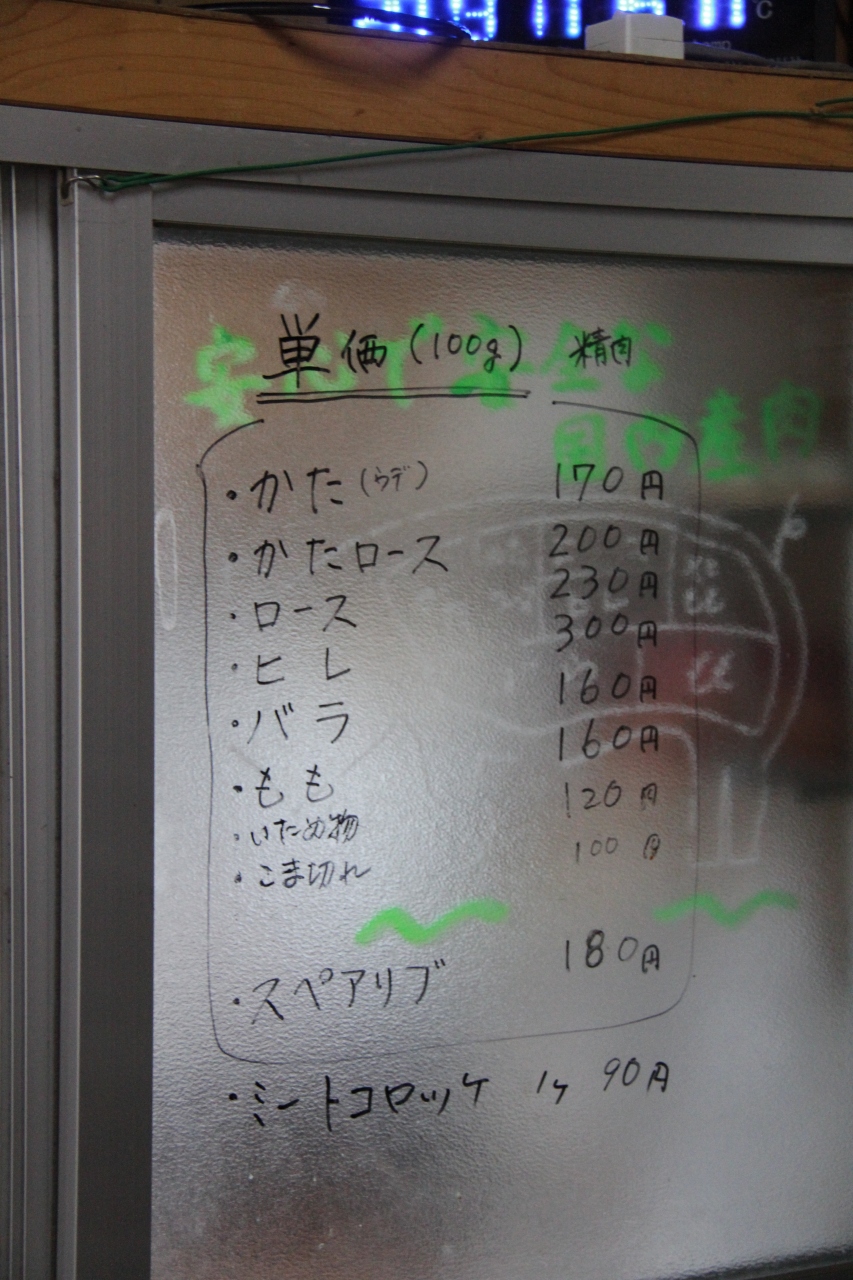 単価(100g) 精肉
安心で安全な
国内産肉
・かた(ウデ) 170円
・かたロース 200円
・ロース 230円
・ヒレ 300円
・バラ 160円
・もも 160円
・いため物 120円
・こま切れ 100円
・スペアリブ 180円
・ミートコロッケ 1ケ 90円